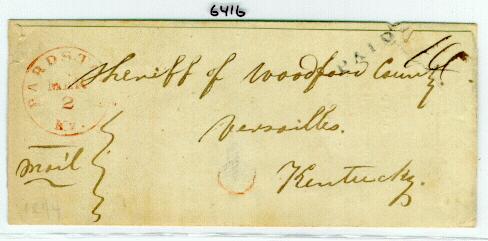 6416
BARDST
MAR
2
KY.
PAID
Sheriff of Woodford County.
Versailles.
Kentucky.
Mail
1844